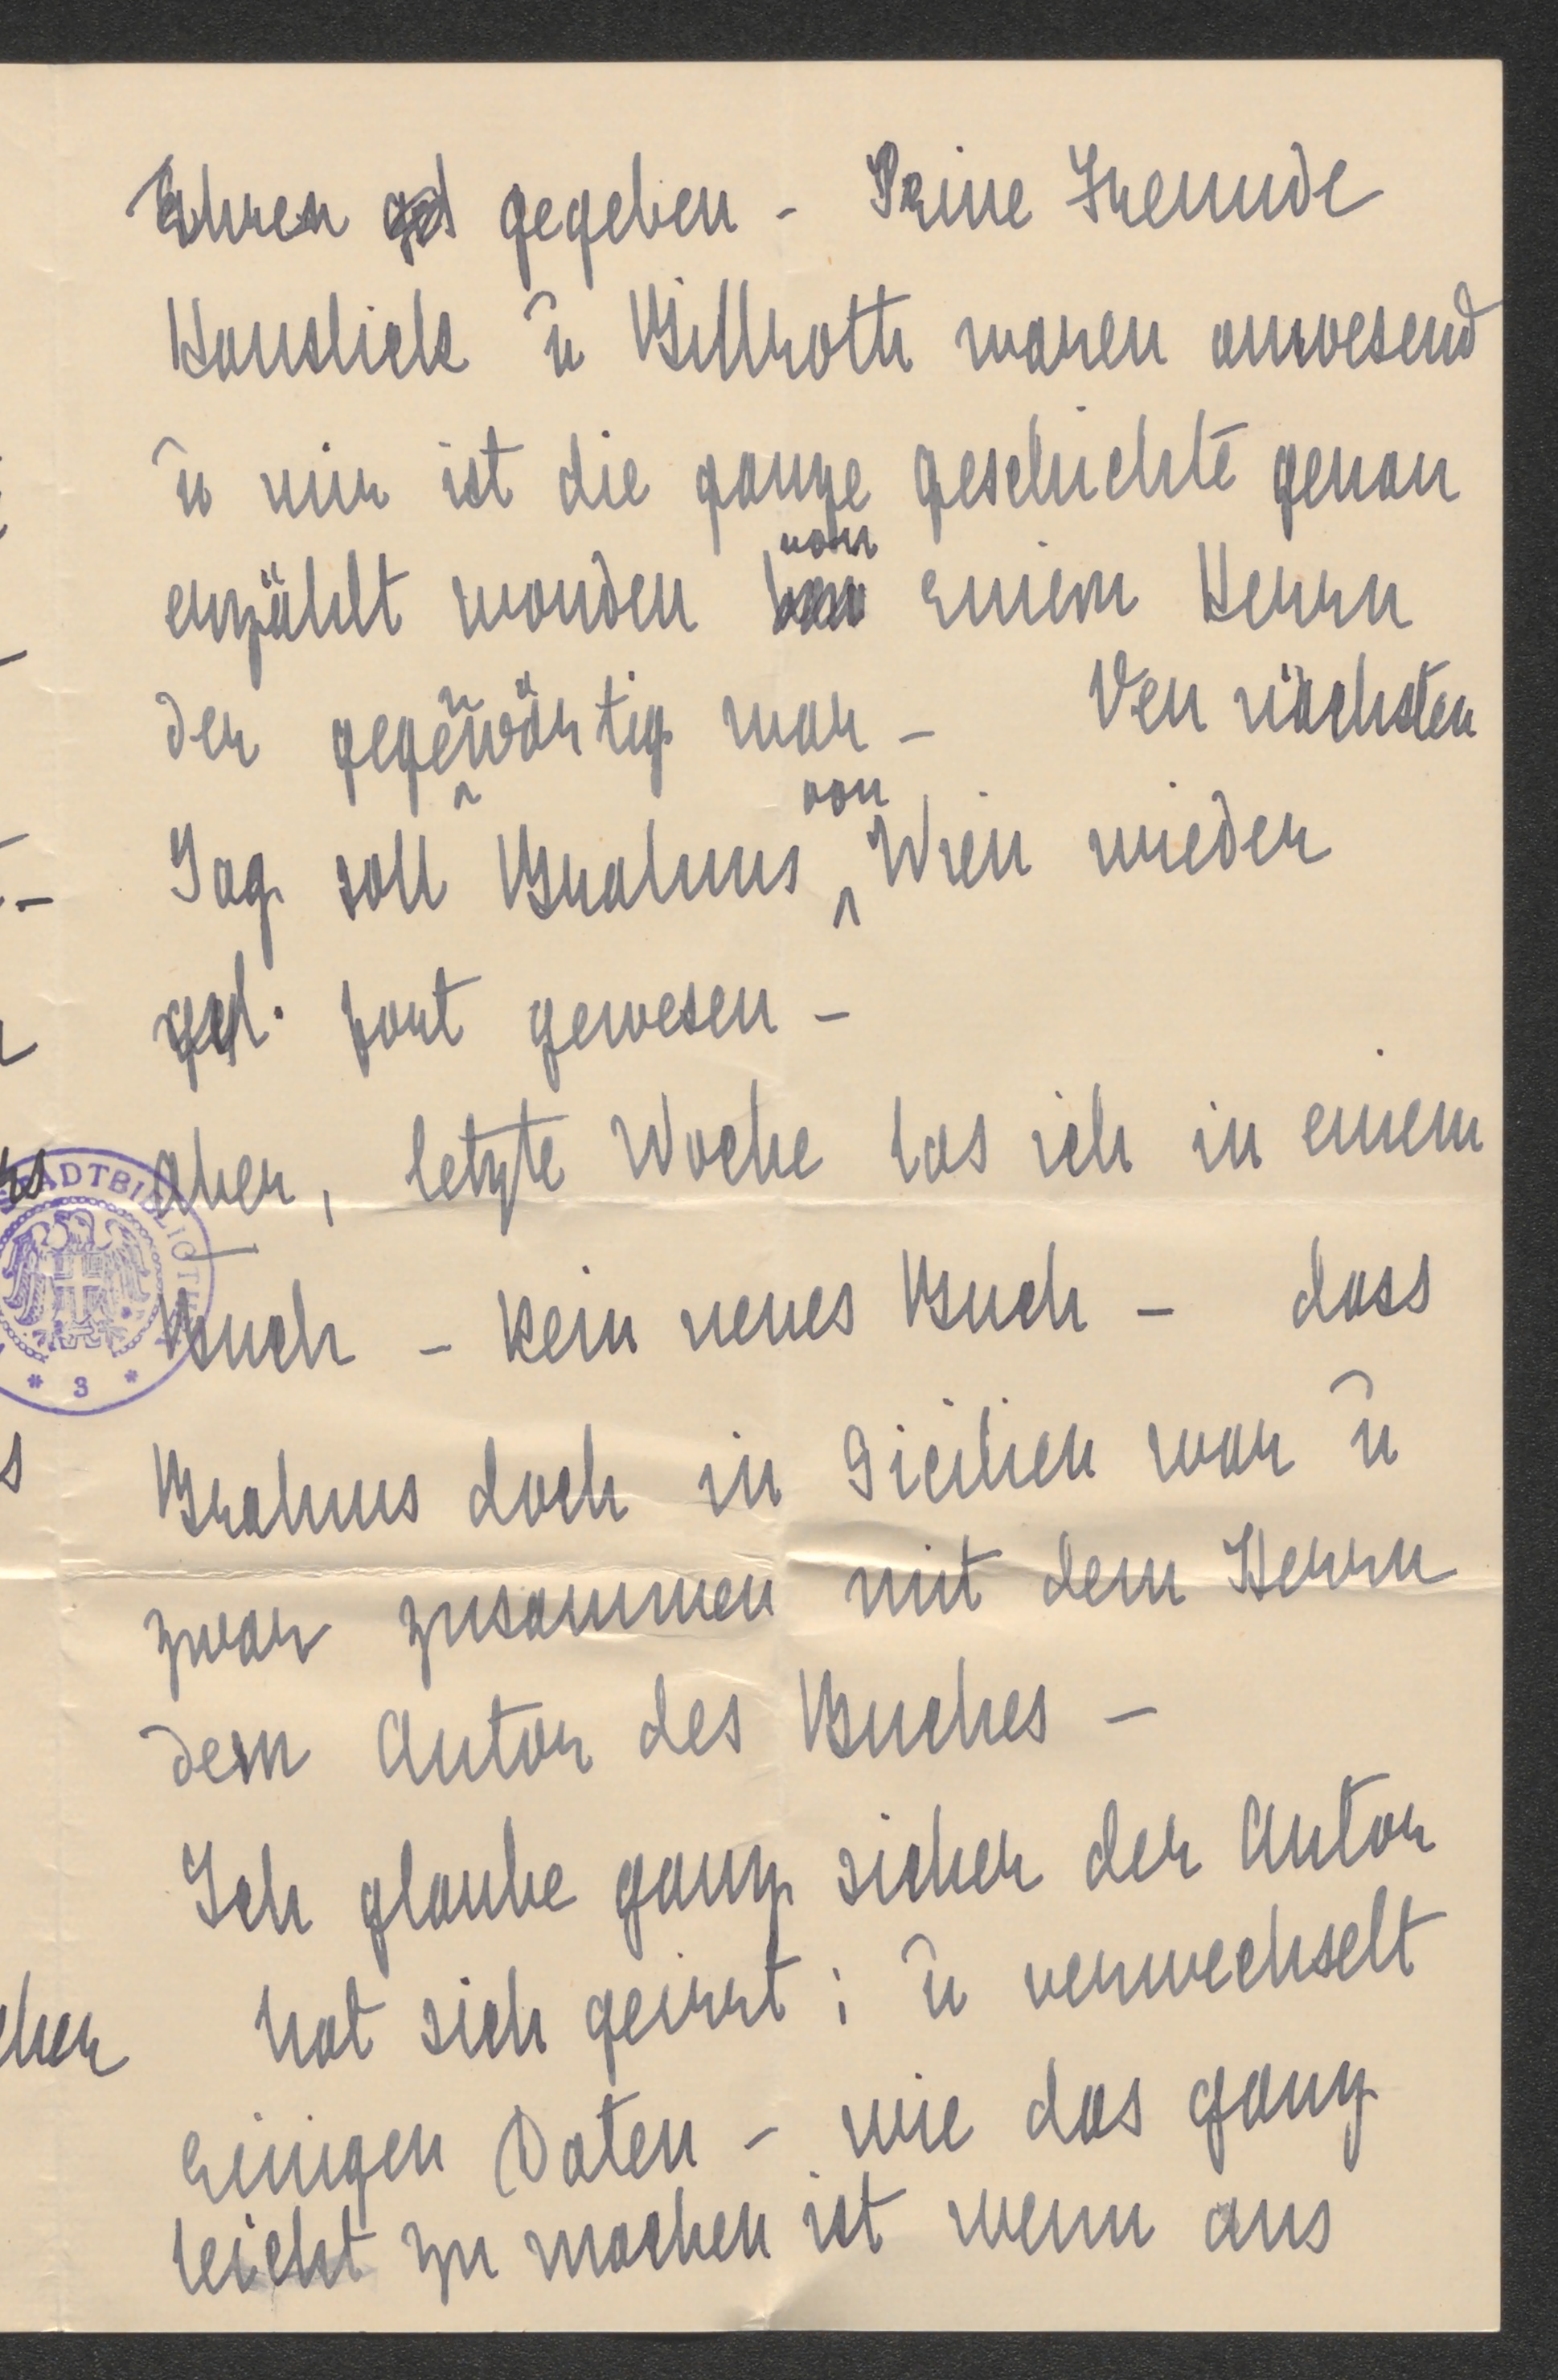 Ehren gegeben - Seine Freunde
Hanslick ū Billroth waren anwesend
ū mir ist die ganze geschichte genau
erzählt worden von einem Herrn
der gegenwärtig war -   Den nächsten
Tag soll Brahms von Wien wieder
fort gewesen -
aber, letzte Woche las ich in einem
Buch - kein neues Buch - dass
Brahms doch in Sicilien war ū
zwar zusammen mit dem Herrn
dem Autor des Buches -
Ich glaube ganz sicher der Autor
hat sich geirrt; ū verwechselt
einigen Daten - wie das ganz
leicht zu machen ist wenn aus
STADTBIBLIOTHEK
* 3 *